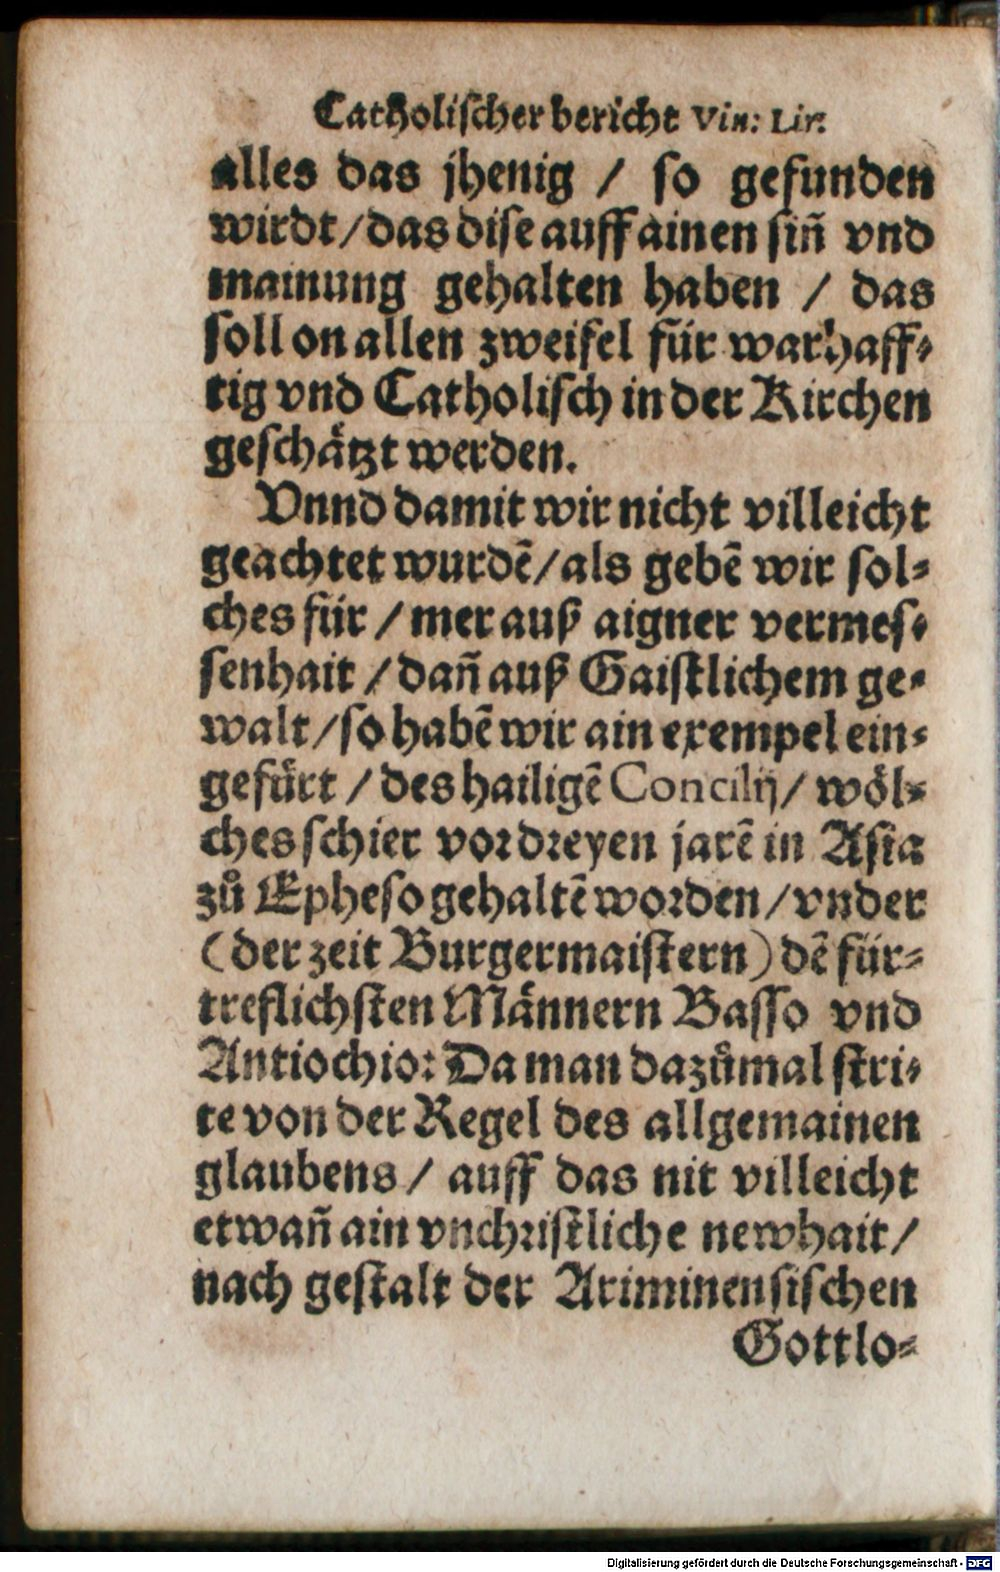 Catholischer bericht Vin: Lir:
alles das jhenig / so gefunden
wirdt / das dise auff ainen sin̄ vnd
mainung gehalten haben / das
soll on allen zweifel für warhaff-
tig vnd Catholisch in der Kirchen
geschaͤtzt werden.
Vnnd damit wir nicht villeicht
geachtet wurdē / als gebē wir sol-
ches für / mer auß aigner vermes-
senhait / dan̄ auß Gaistlichem ge-
walt / so habē wir ain exempel ein-
gefuͤrt / des hailigē Concilij / woͤl-
ches schier vor dreyen jarē in Asia
zuͦ Epheso gehaltē worden / vnder
(der zeit Burgermaistern) dē für-
treflichsten Maͤnnern Basso vnd
Antiochio: Da man dazuͦmal stri-
te von der Regel des allgemainen
glaubens / auff das nit villeicht
etwan̄ ain vnchristliche newhait /
nach gestalt der Ariminensischen
Gottlo-
Digitalisierung gefördert durch die Deutsche Forschungsgemeinschaft - DFG